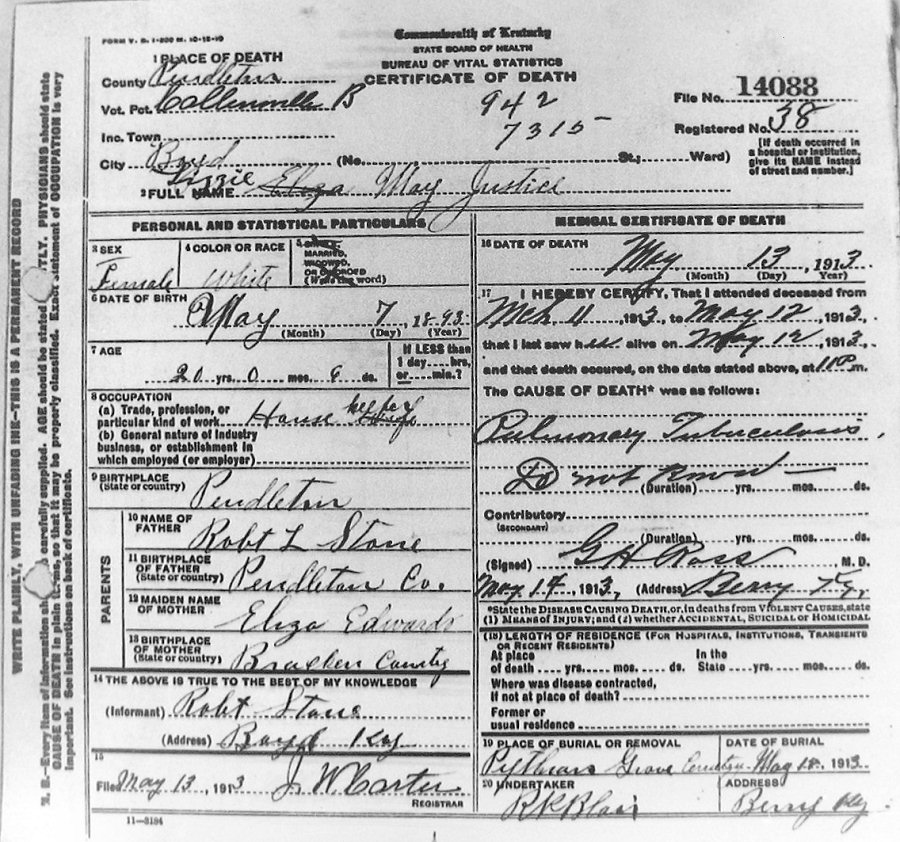 FORM V. S. 1-200 M. 10-15-10
Commonwealth of Kentucky
STATE BOARD OF HEALTH
BUREAU OF VITAL STATISTICS
CERTIFICATE OF DEATH
1 PLACE OF DEATH
County Pendleton
Vot. Pct. B
Inc. Town
City Boyd (No. St.; Ward)
942
7315
File No. 14088
Registered No. 38
[If death occurred in a hospital or institution, give its NAME instead of street and number.]
2 FULL NAME Lizzie Eliza May Justice
PERSONAL AND STATISTICAL PARTICULARS
3 SEX
Female
4 COLOR OR RACE
White
5 SINGLE,
MARRIED,
WIDOWED,
OR DIVORCED
(Write the word)
6 DATE OF BIRTH
May 7, 1893
(Month) (Day) (Year)
7 AGE
20 yrs. 0 mos. 6 ds.
If LESS than
1 day.... hrs,
or.... min.?
8 OCCUPATION
(a) Trade, profession, or
particular kind of work House keeper
(b) General nature of industry
business, or establishment in
which employed (or employer)
9 BIRTHPLACE
(State or country) Pendleton
PARENTS
10 NAME OF
FATHER Robt L Stone
11 BIRTHPLACE
OF FATHER
(State or country) Pendleton Co.
12 MAIDEN NAME
OF MOTHER Eliza Edwards
13 BIRTHPLACE
OF MOTHER
(State or country) Bracken County
14 THE ABOVE IS TRUE TO THE BEST OF MY KNOWLEDGE
(Informant) Robt Stone
(Address) Boyd Ky
15
Filed May 13, 1913 J. W. Carter
REGISTRAR
11-3184
MEDICAL CERTIFICATE OF DEATH
16 DATE OF DEATH
May 13, 1913
(Month) (Day) (Year)
17 I HEREBY CERTIFY, That I attended deceased from
Mch 11 1913, to May 12 1913,
that I last saw her alive on May 12, 1913,
and that death occured, on the date stated above, at 11 P m.
The CAUSE OF DEATH* was as follows:
Pulmonary Tuberculosis,
Do not know
(Duration) yrs. mos. ds.
Contributory
(SECONDARY)
(Duration) yrs. mos. ds.
(Signed) G H Ross M. D.
May 14, 1913, (Address) Berry Ky.
*State the DISEASE CAUSING DEATH, or, in deaths from VIOLENT CAUSES, state
(1) MEANS OF INJURY; and (2) whether ACCIDENTAL, SUICIDAL or HOMICIDAL
(18) LENGTH OF RESIDENCE (FOR HOSPITALS, INSTITUTIONS, TRANSIENTS
OR RECENT RESIDENTS)
At place In the
of death.... yrs.... mos.... ds. State.... yrs.... mos.... ds.
Where was disease contracted,
If not at place of death?
Former or
usual residence
19 PLACE OF BURIAL OR REMOVAL
Pythian Grove
DATE OF BURIAL
May 15, 1913
20 UNDERTAKER
R K Blair
ADDRESS
Berry Ky
WRITE PLAINLY, WITH UNFADING INK—THIS IS A PERMANENT RECORD
N. B.—Every item of information carefully supplied. AGE should be stated PHYSICIANS should state
CAUSE OF DEATH in plain so that it may be properly classified. statement of OCCUPATION is very
important. See instructions on back of certificate.